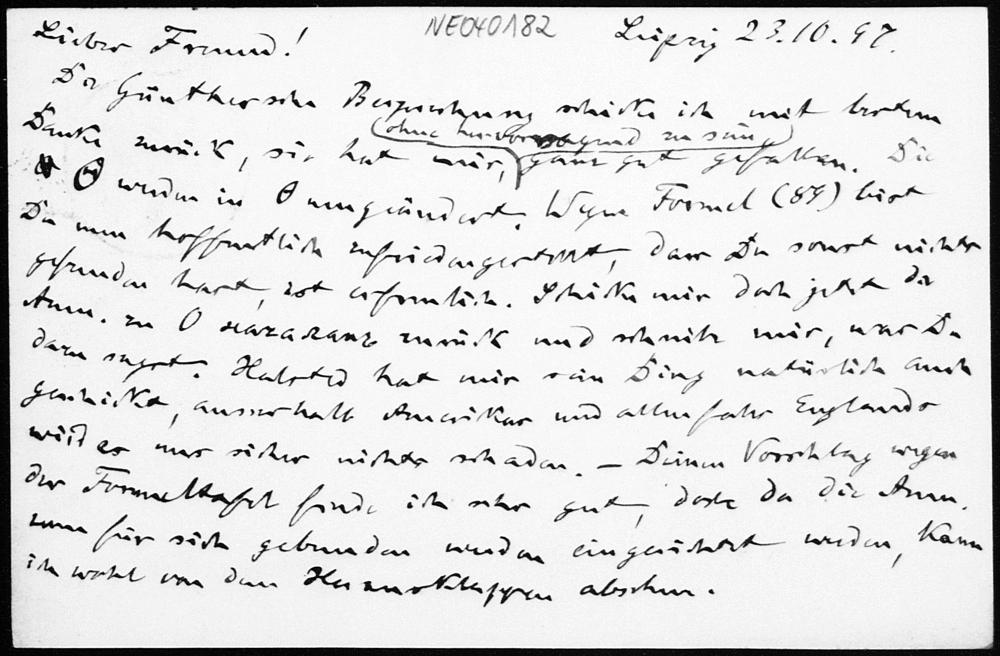 NE040182
Lieber Freund! Leipzig 23.10.97.
Die Günthersche Besprechung schicke ich mit bestem
(ohne hervorragend zu sein)
Danke zurück, sie hat mir, ganz gut gefallen. Die
Θ werden in Θ umgeändert. Wegen Formel (89) bist
Du nun hoffentlich zufriedengestellt, dass Du sonst nichts
gefunden hast, ist erfreulich. Schicke mir doch jetzt die
Anm. zu О началахъ zurück und schreibe mir, was Du
dazu sagst. Halsted hat mir sein Ding natürlich auch
geschickt, ausserhalb Amerikas und allenfalls Englands
wird es uns sicher nichts schaden. – Deinen Vorschlag wegen
der Formeltafel finde ich sehr gut, doch da die Anm.
nun für sich gebunden werden eingerichtet werden, kann
ich wohl von dem Herausklappen absehen.